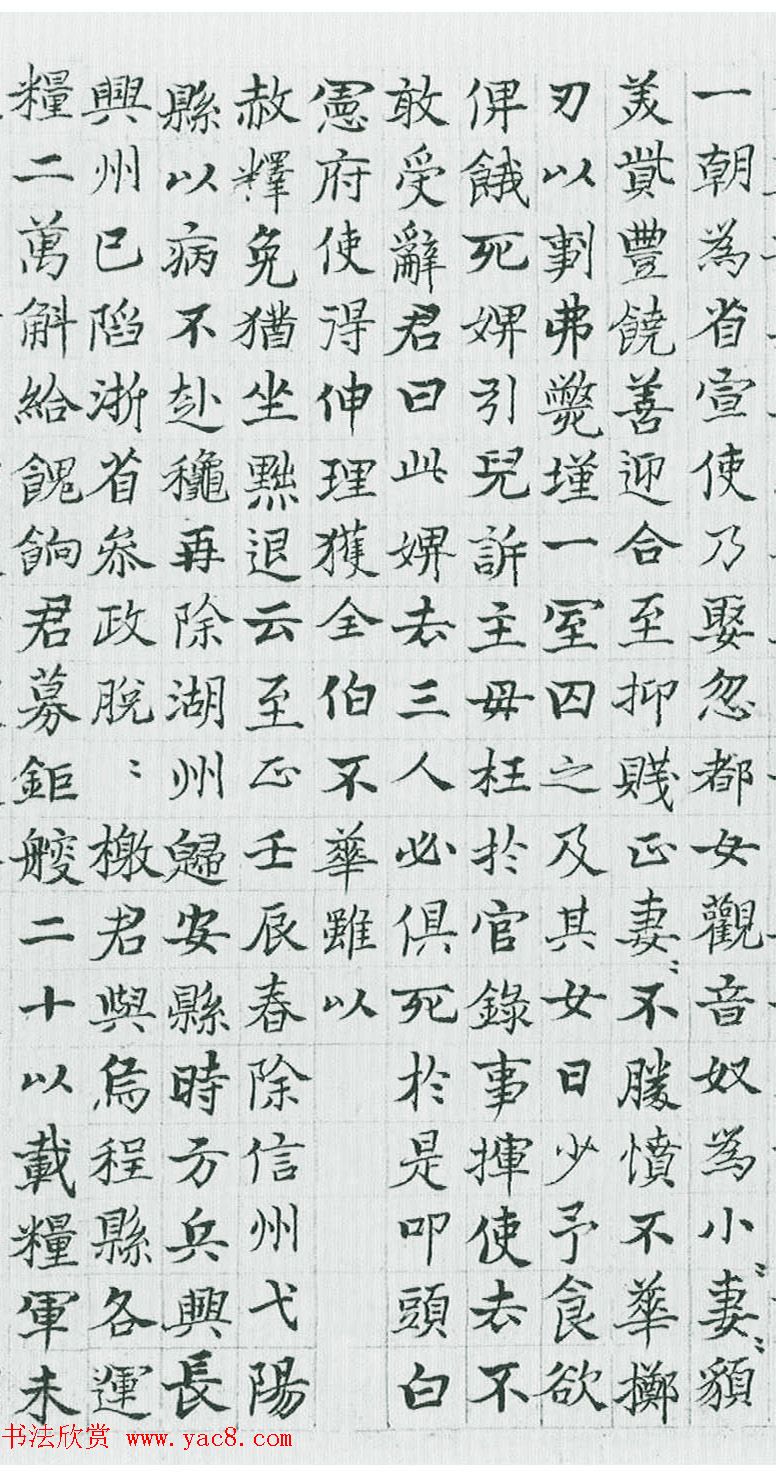 一朝為省宣使乃娶忽都女觀音奴為小〻妻〻貌
美貲豐饒善迎合至抑賤正妻〻不勝憤不華擲
刃以剚弗斃墐一室囚之及其女日少予食欲
俾餓死婢引兒訴主毋枉於官錄事揮使去不
敢受辭君曰此婢去三人必俱死於是叩頭白
憲府使得伸理獲全伯不華雖以
赦釋免猶坐黜退云至正壬辰春除信州弋陽
縣以病不赴穐再除湖州歸安縣時方兵興長
興州已陷浙省叅政脫〻檄君與烏程縣各運
糧二萬斛給餽餉君募鉅艘二十以載糧軍未
书法欣赏 www.yac8.com